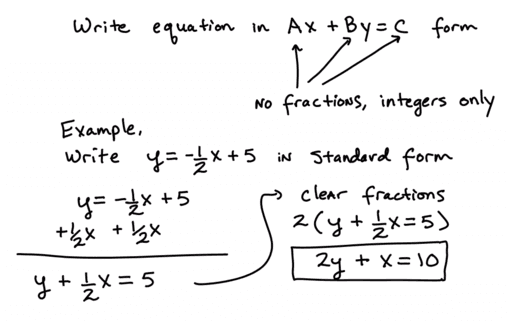 Write equation in Ax + By = C form
No fractions, integers only
Example,
Write y = -1/2x + 5 in standard form
y = -1/2x + 5
+1/2x +1/2x
y + 1/2x = 5
clear fractions
2(y + 1/2x = 5)
2y + x = 10